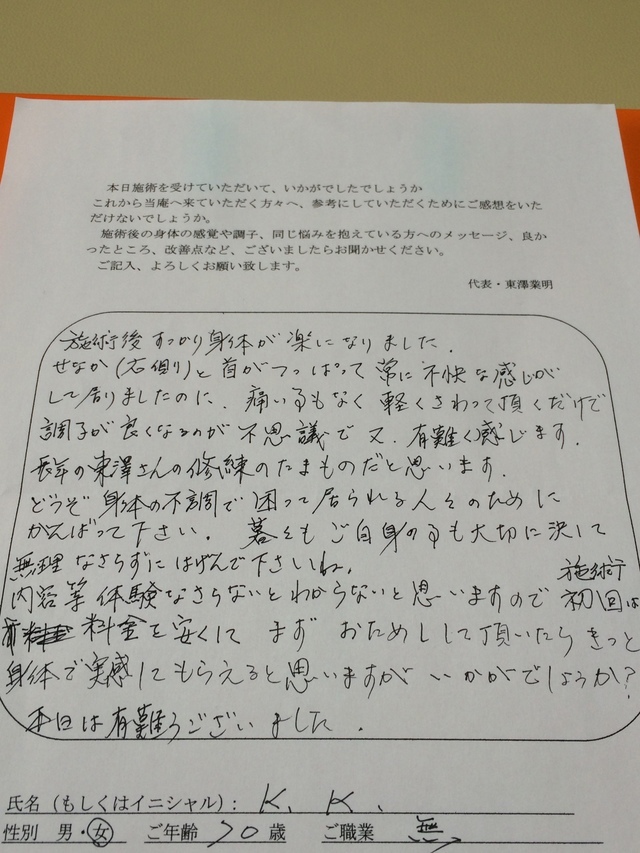 本日施術を受けていただいて、いかがでしたでしょうか
これから当庵へ来ていただく方々へ、参考にしていただくためにご感想をいた
だけないでしょうか。
施術後の身体の感覚や調子、同じ悩みを抱えている方へのメッセージ、良か
ったところ、改善点など、ございましたらお聞かせください。
ご記入、よろしくお願い致します。
代表・東澤業明
施術後すっかり身体が楽になりました.
せなか(右側り)と首がつっぱって常に不快な感じが
して居りましたのに.痛いるもなく軽くさわって頂くだけで
調子が良くなるのが不思議で又.有難く感じます.
長年の東澤さんの修練のたまものだと思います.
どうぞ身体の不調で困って居られる人々のために
がんばって下さい. 暮々もご自身のるも大切に決して
無理なさらずにはげんで下さいね.
内容等体験なさらないとわからないと思いますので施術初回は
料金を安くして まず おためしして頂いたらきっと
身体で実感してもらえると思いますがいかがでしょうか?
本日は有難うございました.
氏名(もしくはイニシャル): K. K.
性別 男・女 ご年齢 70 歳 ご職業 無